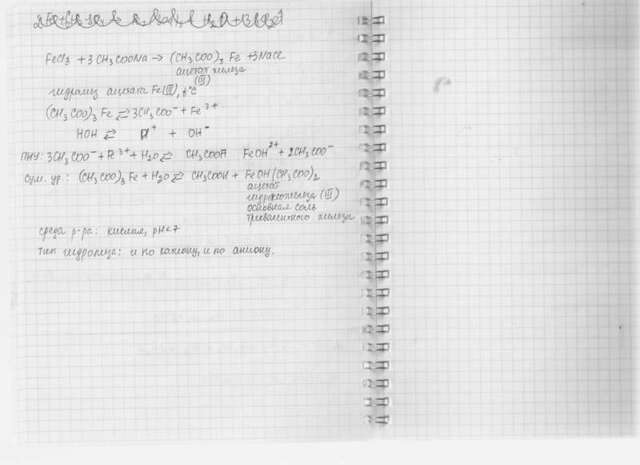 FeCl3 + 3CH3COONa → (CH3COO)3 Fe + 3NaCl
ацетат железа
(III)
гидролиз ацетата Fe(III), t°C
(CH3COO)3 Fe ⇄ 3CH3COO⁻ + Fe³⁺
HOH ⇄ H⁺ + OH⁻
ПИУ: 3CH3COO⁻ + Fe³⁺ + H2O ⇄ CH3COOH FeOH²⁺ + 2CH3COO⁻
сум. ур.: (CH3COO)3 Fe + H2O ⇄ CH3COOH + FeOH(CH3COO)2
ацетат
гидроксожелеза (III)
основная соль
трехвалентного железа
среда р-ра: кислая, pH<7
тип гидролиза: и по катиону, и по аниону.